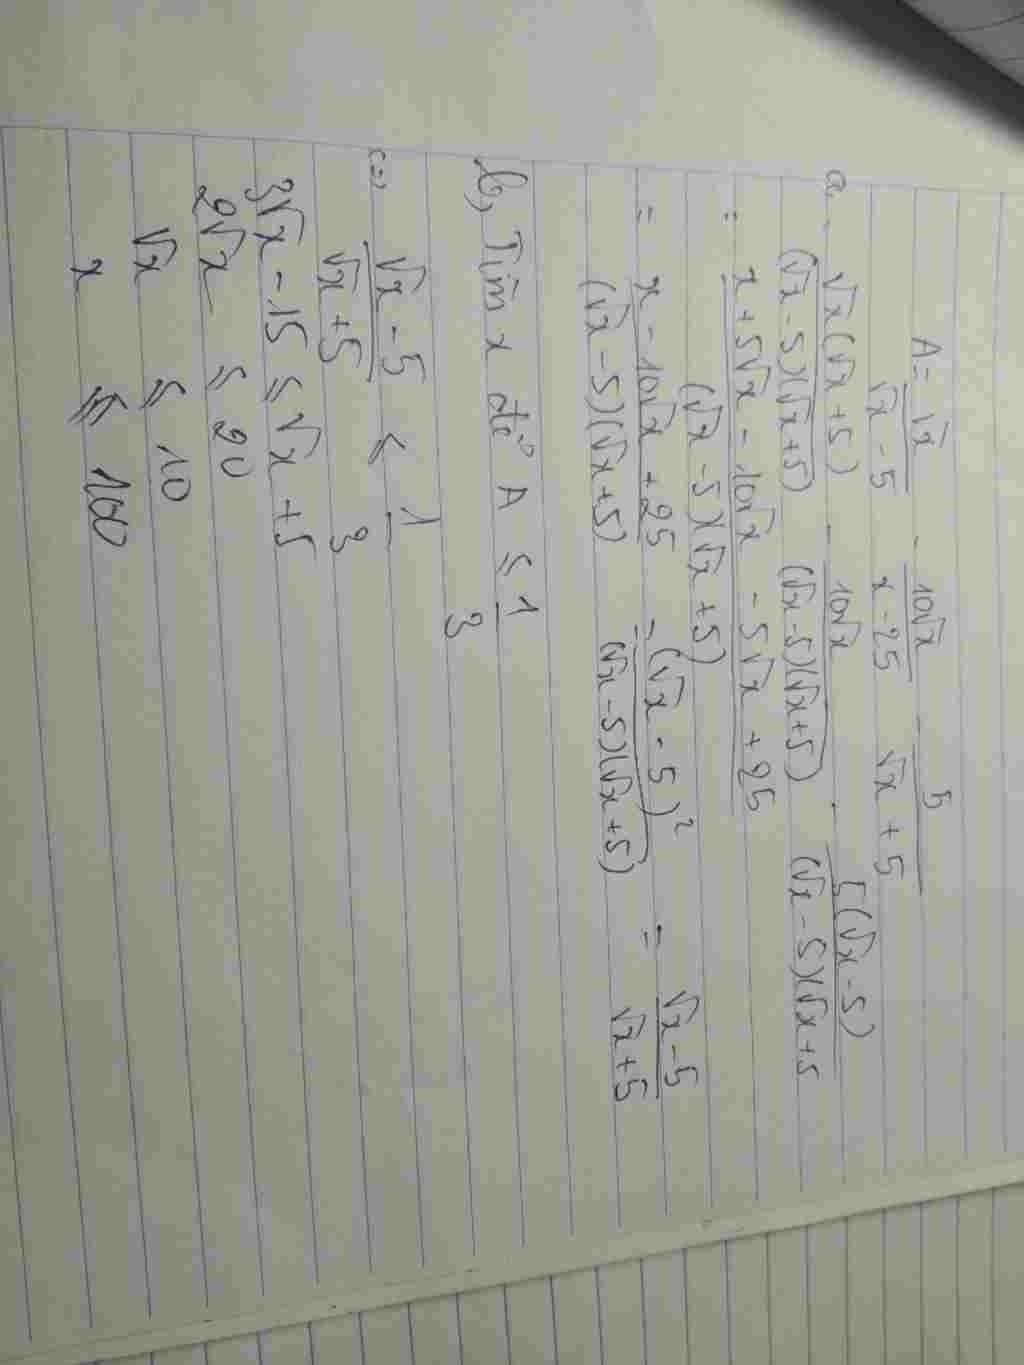 A = √x / (√x - 5) - 10√x / (x - 25) - 5 / (√x + 5)
a. √x(√x + 5) / (√x - 5)(√x + 5) - 10√x / (√x - 5)(√x + 5) - 5(√x - 5) / (√x - 5)(√x + 5
= x + 5√x - 10√x - 5√x + 25 / (√x - 5)(√x + 5)
= x - 10√x + 25 / (√x - 5)(√x + 5) = (√x - 5)² / (√x - 5)(√x + 5) = √x - 5 / √x + 5
b, Tìm x để A ≤ 1/3
<=> √x - 5 / √x + 5 ≤ 1/3
3√x - 15 ≤ √x + 5
2√x ≤ 20
√x ≤ 10
x ≤ 100